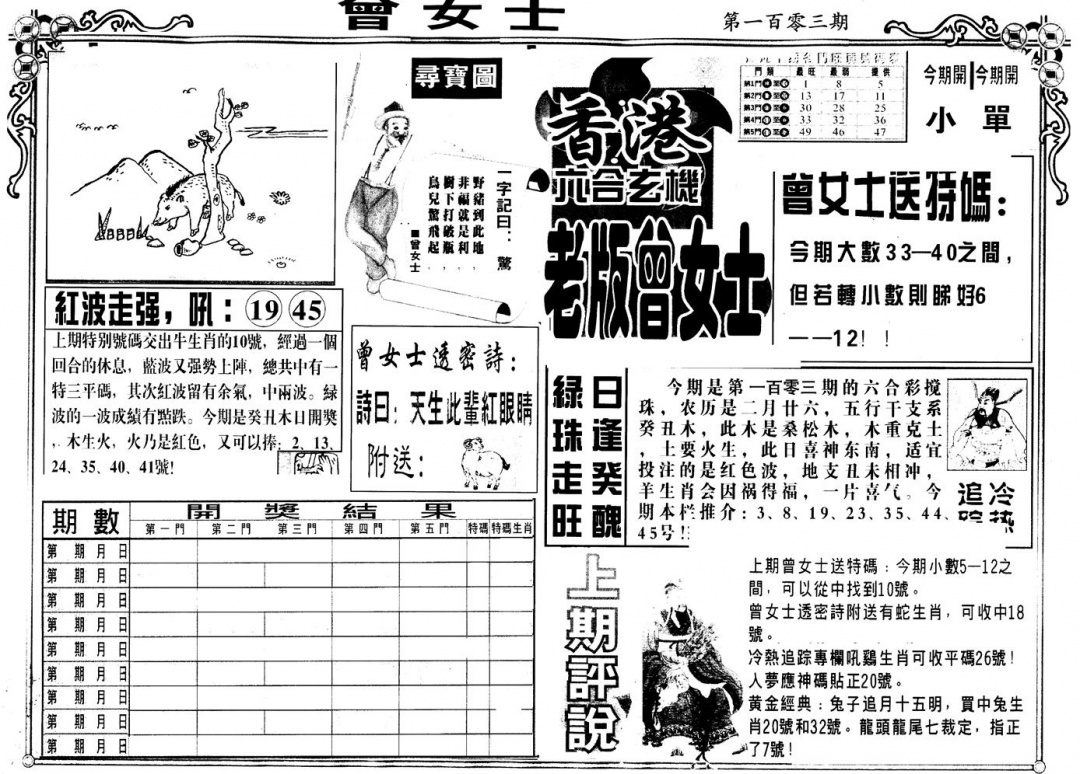 曾女士
第一百零三期
尋寶圖
一字記曰：驚
野豬到此地，
非福就是利，
樹下打破瓶，
鳥兒驚飛起。
■曾女士
香港
六合玄機
老版曾女士
門類 最旺 最弱 提供
第1門 1 8 5
第2門 13 17 11
第3門 30 28 25
第4門 33 32 36
第5門 49 46 47
今期開 今期開
小 單
曾女士送特碼：
今期大數33—40之間，
但若轉小數則睇好6
——12！！
紅波走强，吼：19 45
上期特别號碼交出牛生肖的10號，經過一個
回合的休息，藍波又强勢上陣，總共中有一
特三平碼，其次紅波留有余氣，中兩波。緑
波的一波成績有點跌。今期是癸丑木日開獎
，木生火，火乃是紅色，又可以捧：2、13、
24、35、40、41號!
曾女士透密詩：
詩曰：天生此輩紅眼睛
附送：
日逢癸醜
綠珠走旺
今期是第一百零三期的六合彩搅
珠，农历是二月廿六，五行干支系
癸丑木，此木是桑松木，木重克土
，土要火生，此日喜神东南，适宜
投注的是红色波，地支丑未相冲，
羊生肖会因祸得福，一片喜气。今
期本栏推介：3、8、19、23、35、44、
45号!!
冷热
追踪
期數 開獎結果
第一門 第二門 第三門 第四門 第五門 特碼 特碼生肖
第 期 月 日
第 期 月 日
第 期 月 日
第 期 月 日
第 期 月 日
第 期 月 日
第 期 月 日
第 期 月 日
第 期 月 日
上期評說
上期曾女士送特碼：今期小數5—12之
間，可以從中找到10號。
曾女士透密詩附送有蛇生肖，可收中18
號。
冷熱追踪專欄吼鷄生肖可收平碼26號！
人夢應神碼貼正20號。
黄金經典：兔子追月十五明，買中兔生
肖20號和32號。龍頭龍尾七裁定，指正
了7號！